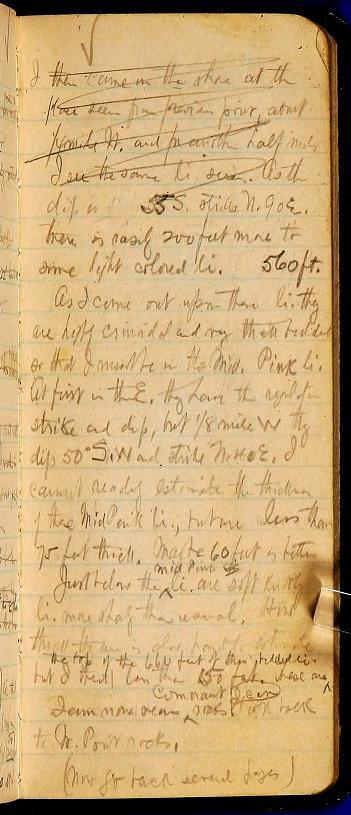 I then came on the shore at the
place seen from previous point, about
1/4 mile W. and in another half mile
I see the same li. As the
dip is 55 S. strike N. 90 E.
there is easily 200 feet more to
some light colored li. 560 ft.
As I come out upon these li. they
are highly crinoidal and very thick bedded
so that I must be in the Mid. Pink li.
At first in the E. they have the regular
strike and dip, but 1/8 mile W they
dip 50° S.W and strike N. 40 E. I
cannot readily estimate the thickness
of these Mid Pink li., but are less than
75 feet thick. Maybe 60 feet is better
Just below the mid Pink li. are soft knobby
li. more shaly than usual.
the top of the 660 feet of thin bedded li.
but I think less than 150 feet. these are
I am now near Comorant rocks I can
to W. Point rocks.
(Now go back several pages)